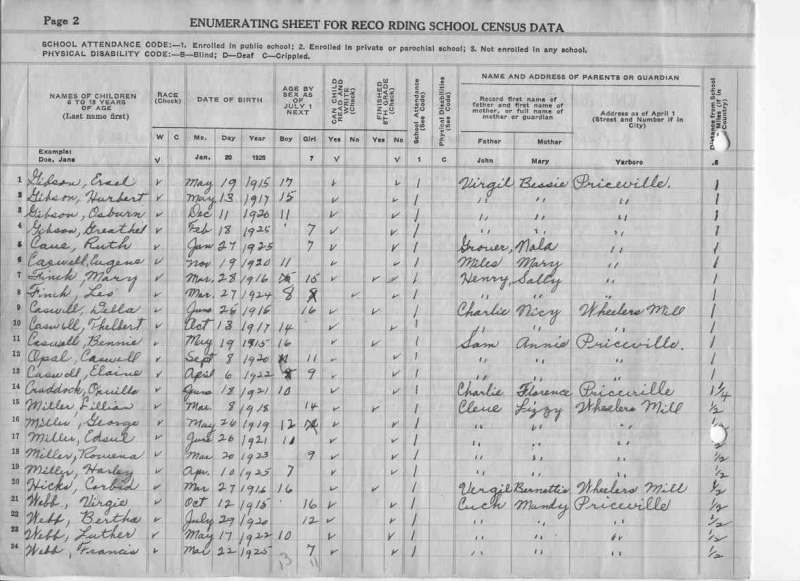 Page 2
ENUMERATING SHEET FOR RECO RDING SCHOOL CENSUS DATA
SCHOOL ATTENDANCE CODE:—1. Enrolled in public school; 2. Enrolled in private or parochial school; 3. Not enrolled in any school.
PHYSICAL DISABILITY CODE:—B—Blind; D—Deaf C—Crippled.
NAMES OF CHILDREN 6 TO 18 YEARS OF AGE (Last name first)
RACE (Check)
DATE OF BIRTH
AGE BY SEX AS OF JULY 1 NEXT
CAN CHILD READ AND WRITE (Check)
FINISHED 8TH GRADE (Check)
School Attendance (See Code)
Physical Disabilities (See Code)
NAME AND ADDRESS OF PARENTS OR GUARDIAN
Record first name of father and first name of mother, or full name of mother or guardian
Address as of April 1 (Street and Number if in City)
Distance from School Miles (if in Country)
W C Mo. Day Year Boy Girl Yes No Yes No Father Mother
Example: Doe, Jane V Jan. 20 1925 7 V V 1 C John Mary Yarboro .5
1 Gibson, Ersel v May 19 1915 17 v v 1 Virgil Bessie Priceville. 1
2 Gibson, Hurbert v May 13 1917 15 v v 1 " " " 1
3 Gibson, Osburn v Dec 11 1920 11 v v 1 " " " 1
4 Gibson, Greathel v Feb 18 1925 7 v v 1 " " " 1
5 Cave, Ruth v Jan 27 1925 7 v v 1 Grover, Nola " 1
6 Caswell, Eugene v Nov 19 1920 11 v v 1 Miles Mary " 1
7 Finck, Mary v Mar. 28 1916 15 v v 1 Henry Sally " 1
8 Finck, Les v Mar. 27 1924 8 v v 1 " " " 1
9 Caswell, Della v June 25 1915 16 v v 1 Charlie Nicy Wheelers Mill 1
10 Caswell, Thelbert v Oct 13 1917 14 v v 1 " " " 1
11 Caswell, Bennie v May 19 1915 16 v v 1 Sam Annie Priceville. 1
12 Opal, Caswell v Sept 8 1920 11 v v 1 " " " 1
13 Caswell, Elaine v April 6 1922 9 v v 1 " " " 1
14 Craddock, Orville v June 18 1921 10 v v 1 Charlie Florence Priceville 1 1/4
15 Miller, Lillian v Mar. 8 1918 14 v v 1 Cleve Lizzy Wheelers Mill 1/2
16 Miller, George v May 26 1919 12 v v 1 " " " 1/2
17 Miller, Edsel v June 26 1921 10 v v 1 " " "
18 Miller, Rowena v Mar. 20 1923 9 v v 1 " " " 1/2
19 Miller, Harley v Apr. 10 1925 7 v v 1 " " " 1/2
20 Hicks, Corbid v Mar 27 1916 16 v v 1 Vergil Burnettie Wheelers Mill 1/2
21 Webb, Virgie v Oct 12 1915 16 v v 1 Cuch Mandy Priceville 1/2
22 Webb, Bertha v July 27 1920 12 v v 1 " " " 1/2
23 Webb, Luther v May 17 1922 10 v v 1 " " " 1/2
24 Webb, Francis v Mar 22 1925 7 v v 1 " " " 1/2
13 11